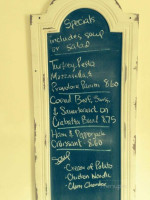 Specials
includes soup
or salad
Turkey, Pesto
Mozzarella &
Panini 8.60
Corned Beef, Swiss,
& Sauerkraut on
Ciabatta Bread 8.75
Ham & Pepperjack
Croissant - 8.60
Soup
- Cream of Potato
- Chicken Noodle
- Clam Chowder